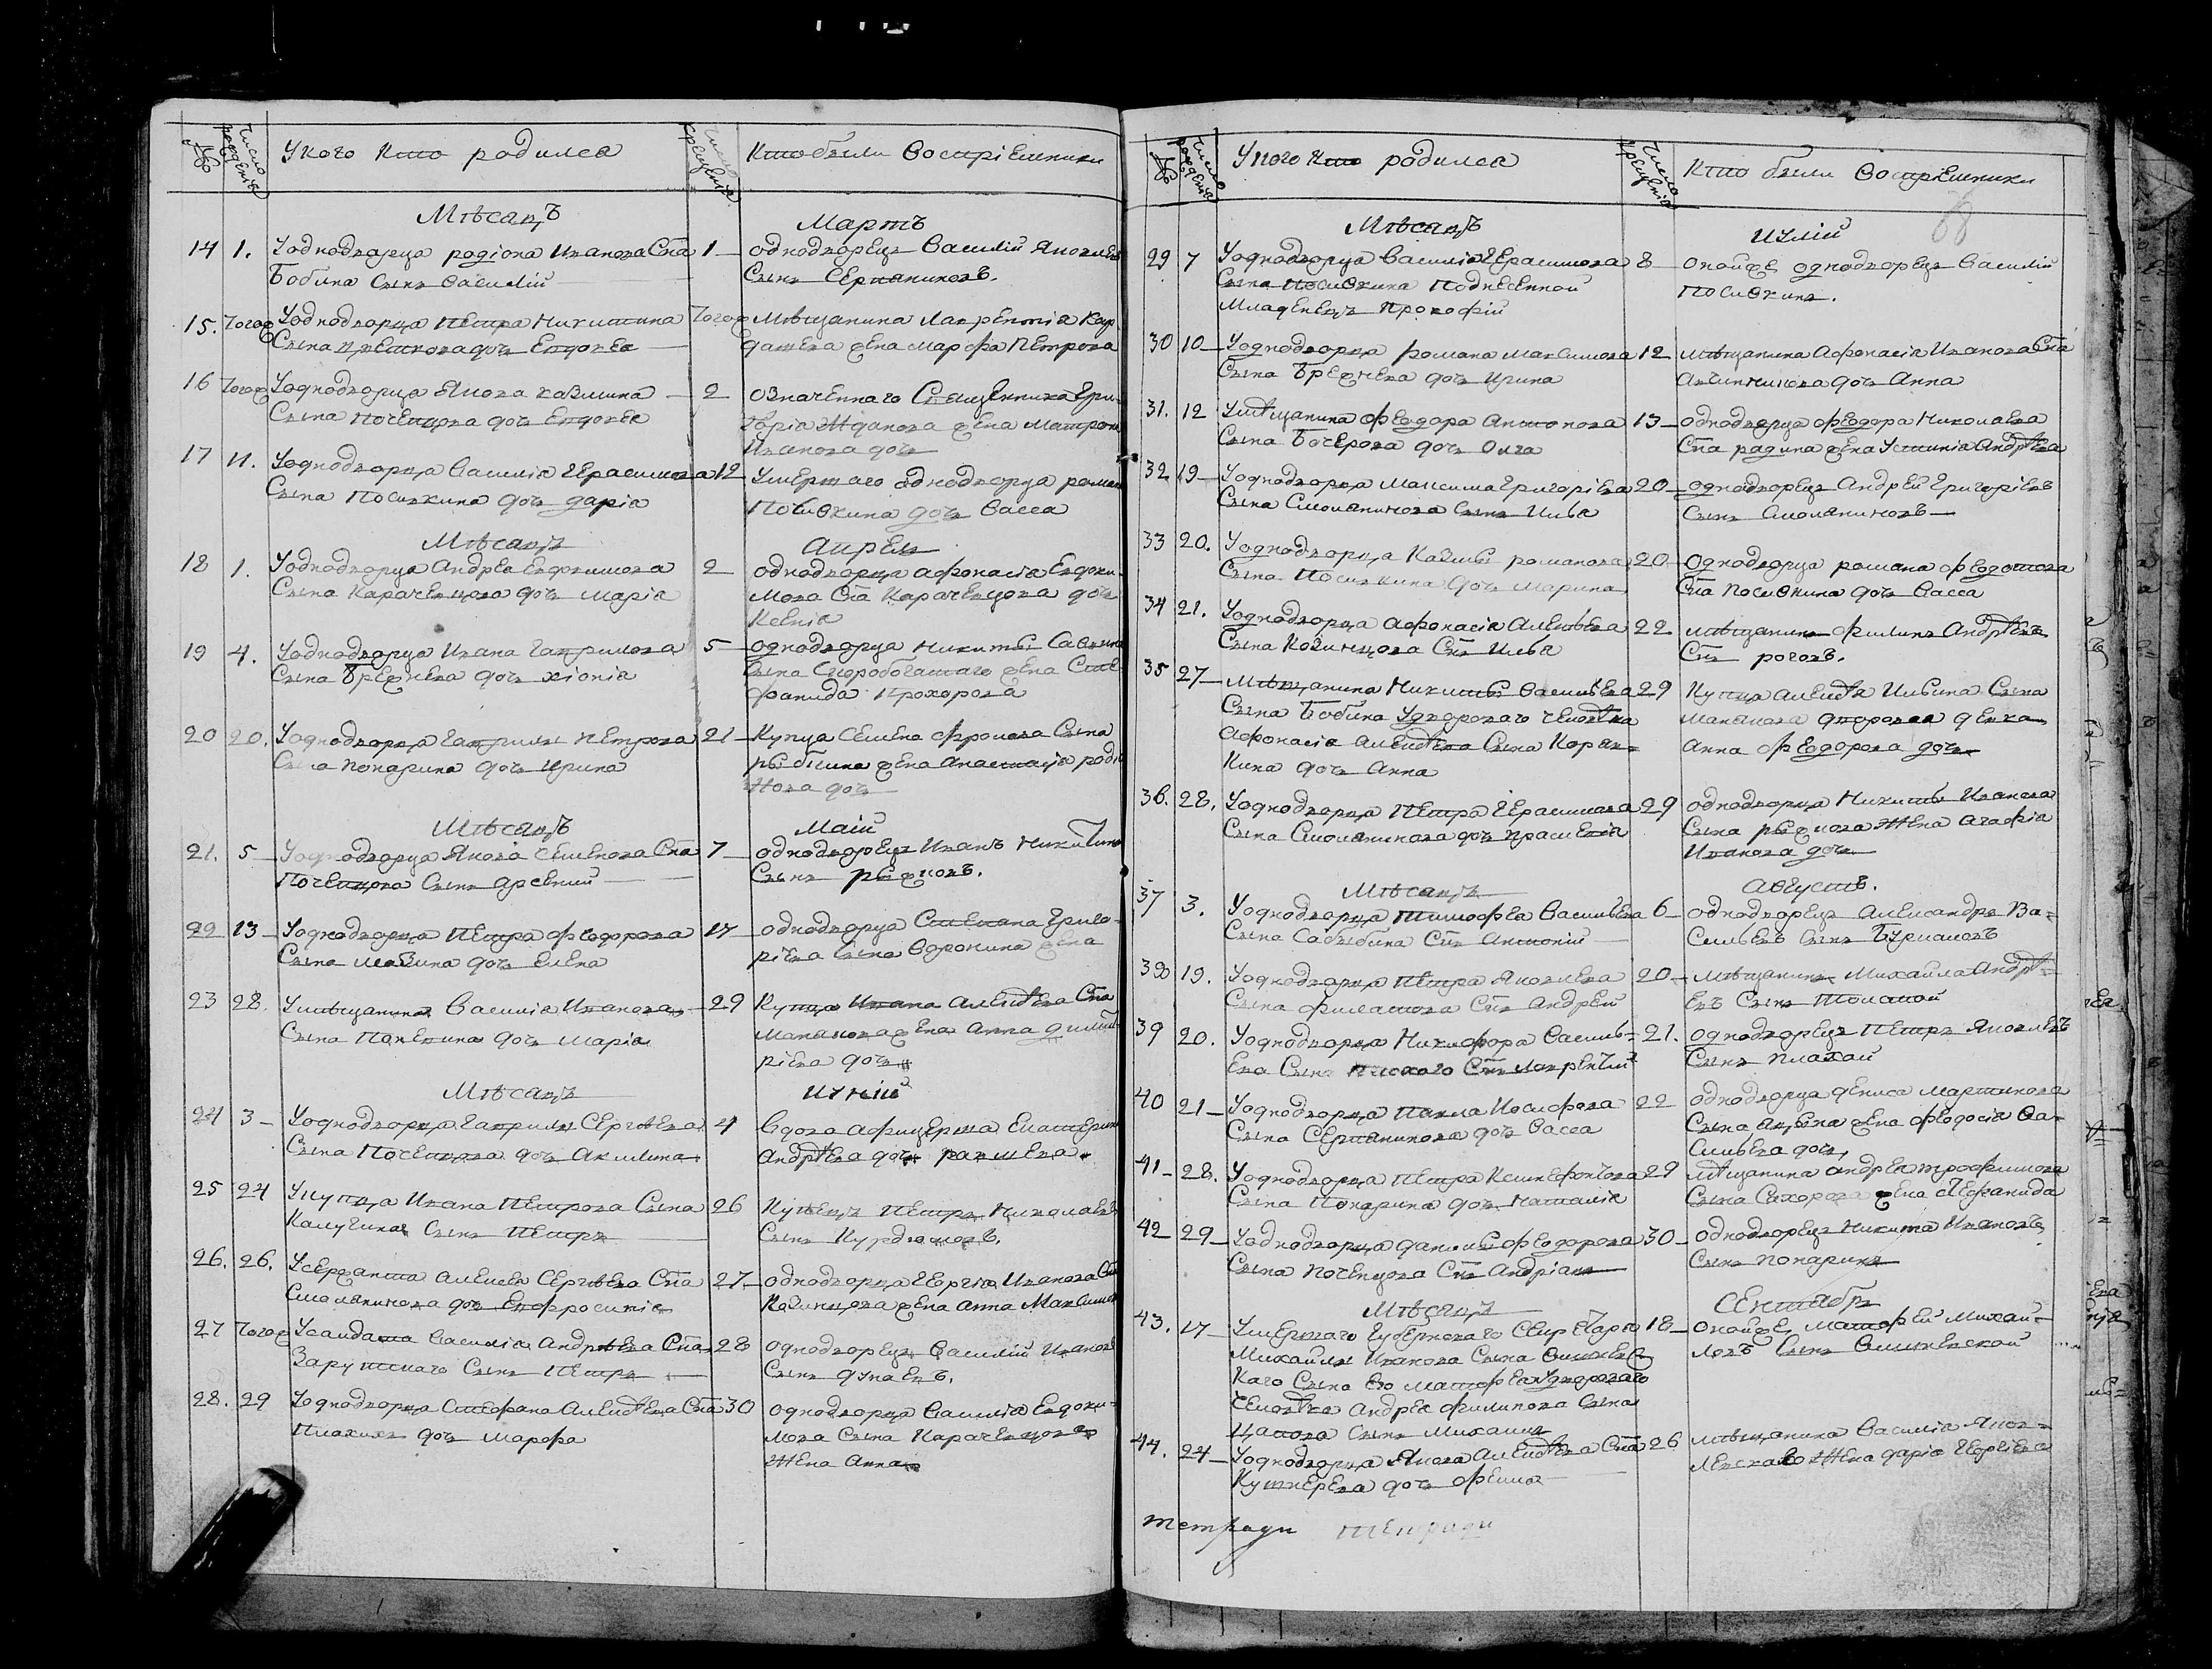 №
Число рожденія
У кого кто родился
Число крещенія
Кто были Воспріемники
Мѣсяцъ
Мартъ
14 1. У однодворца родіона Иванова Сна 1
Бобина Сынъ Василій
однодворецъ Василій Яковлевъ
Сынъ Серпяниковъ.
15. Тогож У однодворца Петра Никитина Тогож
Сына дочь Евдокея
Мѣщанина Лаврентія Кар
дашева жена Марфа Петрова
16 Тогож У однодворца Якова козмина 2
Сына Поченцова дочь Евдокея
означеннаго Священника Гри-
горія Жданова жена Матрона
Иванова дочь
17 11. У однодворца Василія Герасимова 12
Сына Посивкина дочь дарія
Умершаго однодворца роман
Посивкина дочь Васса
Мѣсяцъ
Апрель
18 1. У однодворца Андрея Евфимова 2
Сына Карачевцова дочь Марія
однодворца афонасія Евдоки-
мова Сна Карачевцова дочь
Ксенія
19 4. У однодворца Ивана Гаврилова 5
Сына Брежнева дочь хіонія
однодворца Никиты Савина
Сына Скоробогатаго жена Сте-
фанида прохорова
20 20. У однодворца Гаврилы Петрова 21
Сына Понарина дочь Ирина
Купца Семена фролова Сына
рыбицина жена Анастасія роді
онова дочь
Мѣсяцъ
Маій
21. 5 У однодворца Якова Семенова Сна 7
Поченцова Сынъ арсений
однодворецъ Иванъ Никитинъ
Сынъ рыжковъ.
22 13 У однодворца Петра федорова 17
Сына мазина дочь елена
однодворца Степана Григо-
рьева Сына Воронина жена
23 28. У мѣщанина Василія Иванова 29
Сына Панкина дочь Марія
Купца Ивана Алексѣева Сна
Маканова жена Анна дмит-
ріева дочь
Мѣсяцъ
Июній
24 3 У однодворца Гаврилы Сергѣева 4
Сына Поченцова дочь Акилина
Вдова афицерша Екатерин
Андрѣева дочь
25 24 У купца Ивана Петрова Сына 26
Калугина Сынъ Петръ
Купецъ Петръ Николаевъ
Сынъ Курдюмовъ.
26. 26. У сержанта алексея Сергѣева Сна 27
Смолянинова дочь Евфросинія
однодворца Георгія Иванова Сна
Казинцова жена Анна Максимов
27 Тогож У солдата Василія Андрѣева Сна 28
Зарутскаго Сынъ Петръ
однодворецъ Василій Иванов
Сынъ дунаевъ.
28. 29 У однодворца Стефана Алексѣева Сна 30
Плахихъ дочь Марфа
однодворца Василія Евдоки-
мова Сына Карачевцова
Жена Анна
№
Число рожденія
У кого Кто родился
Число крещенія
Кто были Воспріемники
68
Мѣсяцъ
Иулій
29 7 У однодворца Василія Герасимова 8
Сына Посивкина Поднесенной
Младенецъ Прокофій
онойже однодворецъ Василій
Посивкинъ.
30 10 У однодворца романа максимова 12
Сына Брежнева дочь Ирина
Мѣщанина Афонасія Иванова Сна
дочь Анна
31. 12 У мѣщанина федора Антонова 13
Сына Бочерова дочь Олга
однодворца федора Николаева
Сна радина жена Устинія Андрѣева
32 19 У однодворца Максима Григоріева 20
Сына Смолянинова Сынъ Илья
однодворецъ Андрей Григоріевъ
Сынъ Смоляниновъ
33 20. У однодворца Казмы романова 20
Сына Посивкина дочь Марина
Однодворца романа федотова
Сна Посивкина дочь Васса
34 21. У однодворца Афонасія Алексѣева 22
Сына Козинцова Снъ Илья
Мѣщанинъ филипъ Андрѣевъ
Снъ роговъ.
35 27 Мѣщанина Никиты Васильева 29
Сына Бобина Удвороваго человѣка
Афонасія алексѣева Сына Коряв=
Кина дочь Анна
Купца алексѣя Ильина Сына
Маканова дворовая девка
Анна федорова дочь
36. 28. У однодворца Петра Герасимова 29
Сына Смолянинова дочь прасковія
однодворца Никиты Иванова
Сына рыжкова Жена агафія
Иванова дочь
Мѣсяцъ
Августъ.
37 3. У однодворца Тимофея Васильева 6
Сына Сабыбина Снъ Антоній
однодворецъ александръ Ва=
Сильевъ Сынъ Бурлаковъ
38 19. У однодворца Петра Яковлева 20
Сына филатова Снъ Андрей
мѣщанинъ Михайла Андрѣ=
евъ Сынъ Толмакой
39 20. У однодворца Никифора Василь= 21.
ева Сына Плохаго Снъ лаврентий
однодворецъ Петръ Яковлевъ
Сынъ плахай
40 21 У однодворца Павла Иосифова 22
Сына Серпяникова дочь Васса
однодворца дениса Мартинова
Сына жена федосія Ва-
Сильева дочь,
41 28. У однодворца Петра Ксинефонтова 29
Сына Понарина дочь наталія
мѣщанина андрея трофимова
Сына Сихорова жена стефанида
42 29 У однодворца данилы федорова 30
Сына Поченцова Снъ Андріанъ
однодворецъ Никита Ивановъ
Сынъ понаринъ
Мѣсяцъ
Сентябрь
43. 17 Умершаго Губернскаго Секретаря 18
Михайлы Иванова Сына Вишневс
Каго Сына Его матфея Удвороваго
человѣка Андрея филипова Сына
Цапова Сынъ Михаилъ
онойже матфей Михай=
ловъ Сынъ Вишневской
44. 24 У однодворца Якова Алексѣева Сна 26
Кутнерева дочь фекла
мѣщанина Василія Яков=
Жена дарія Георгіева
тетради тетради